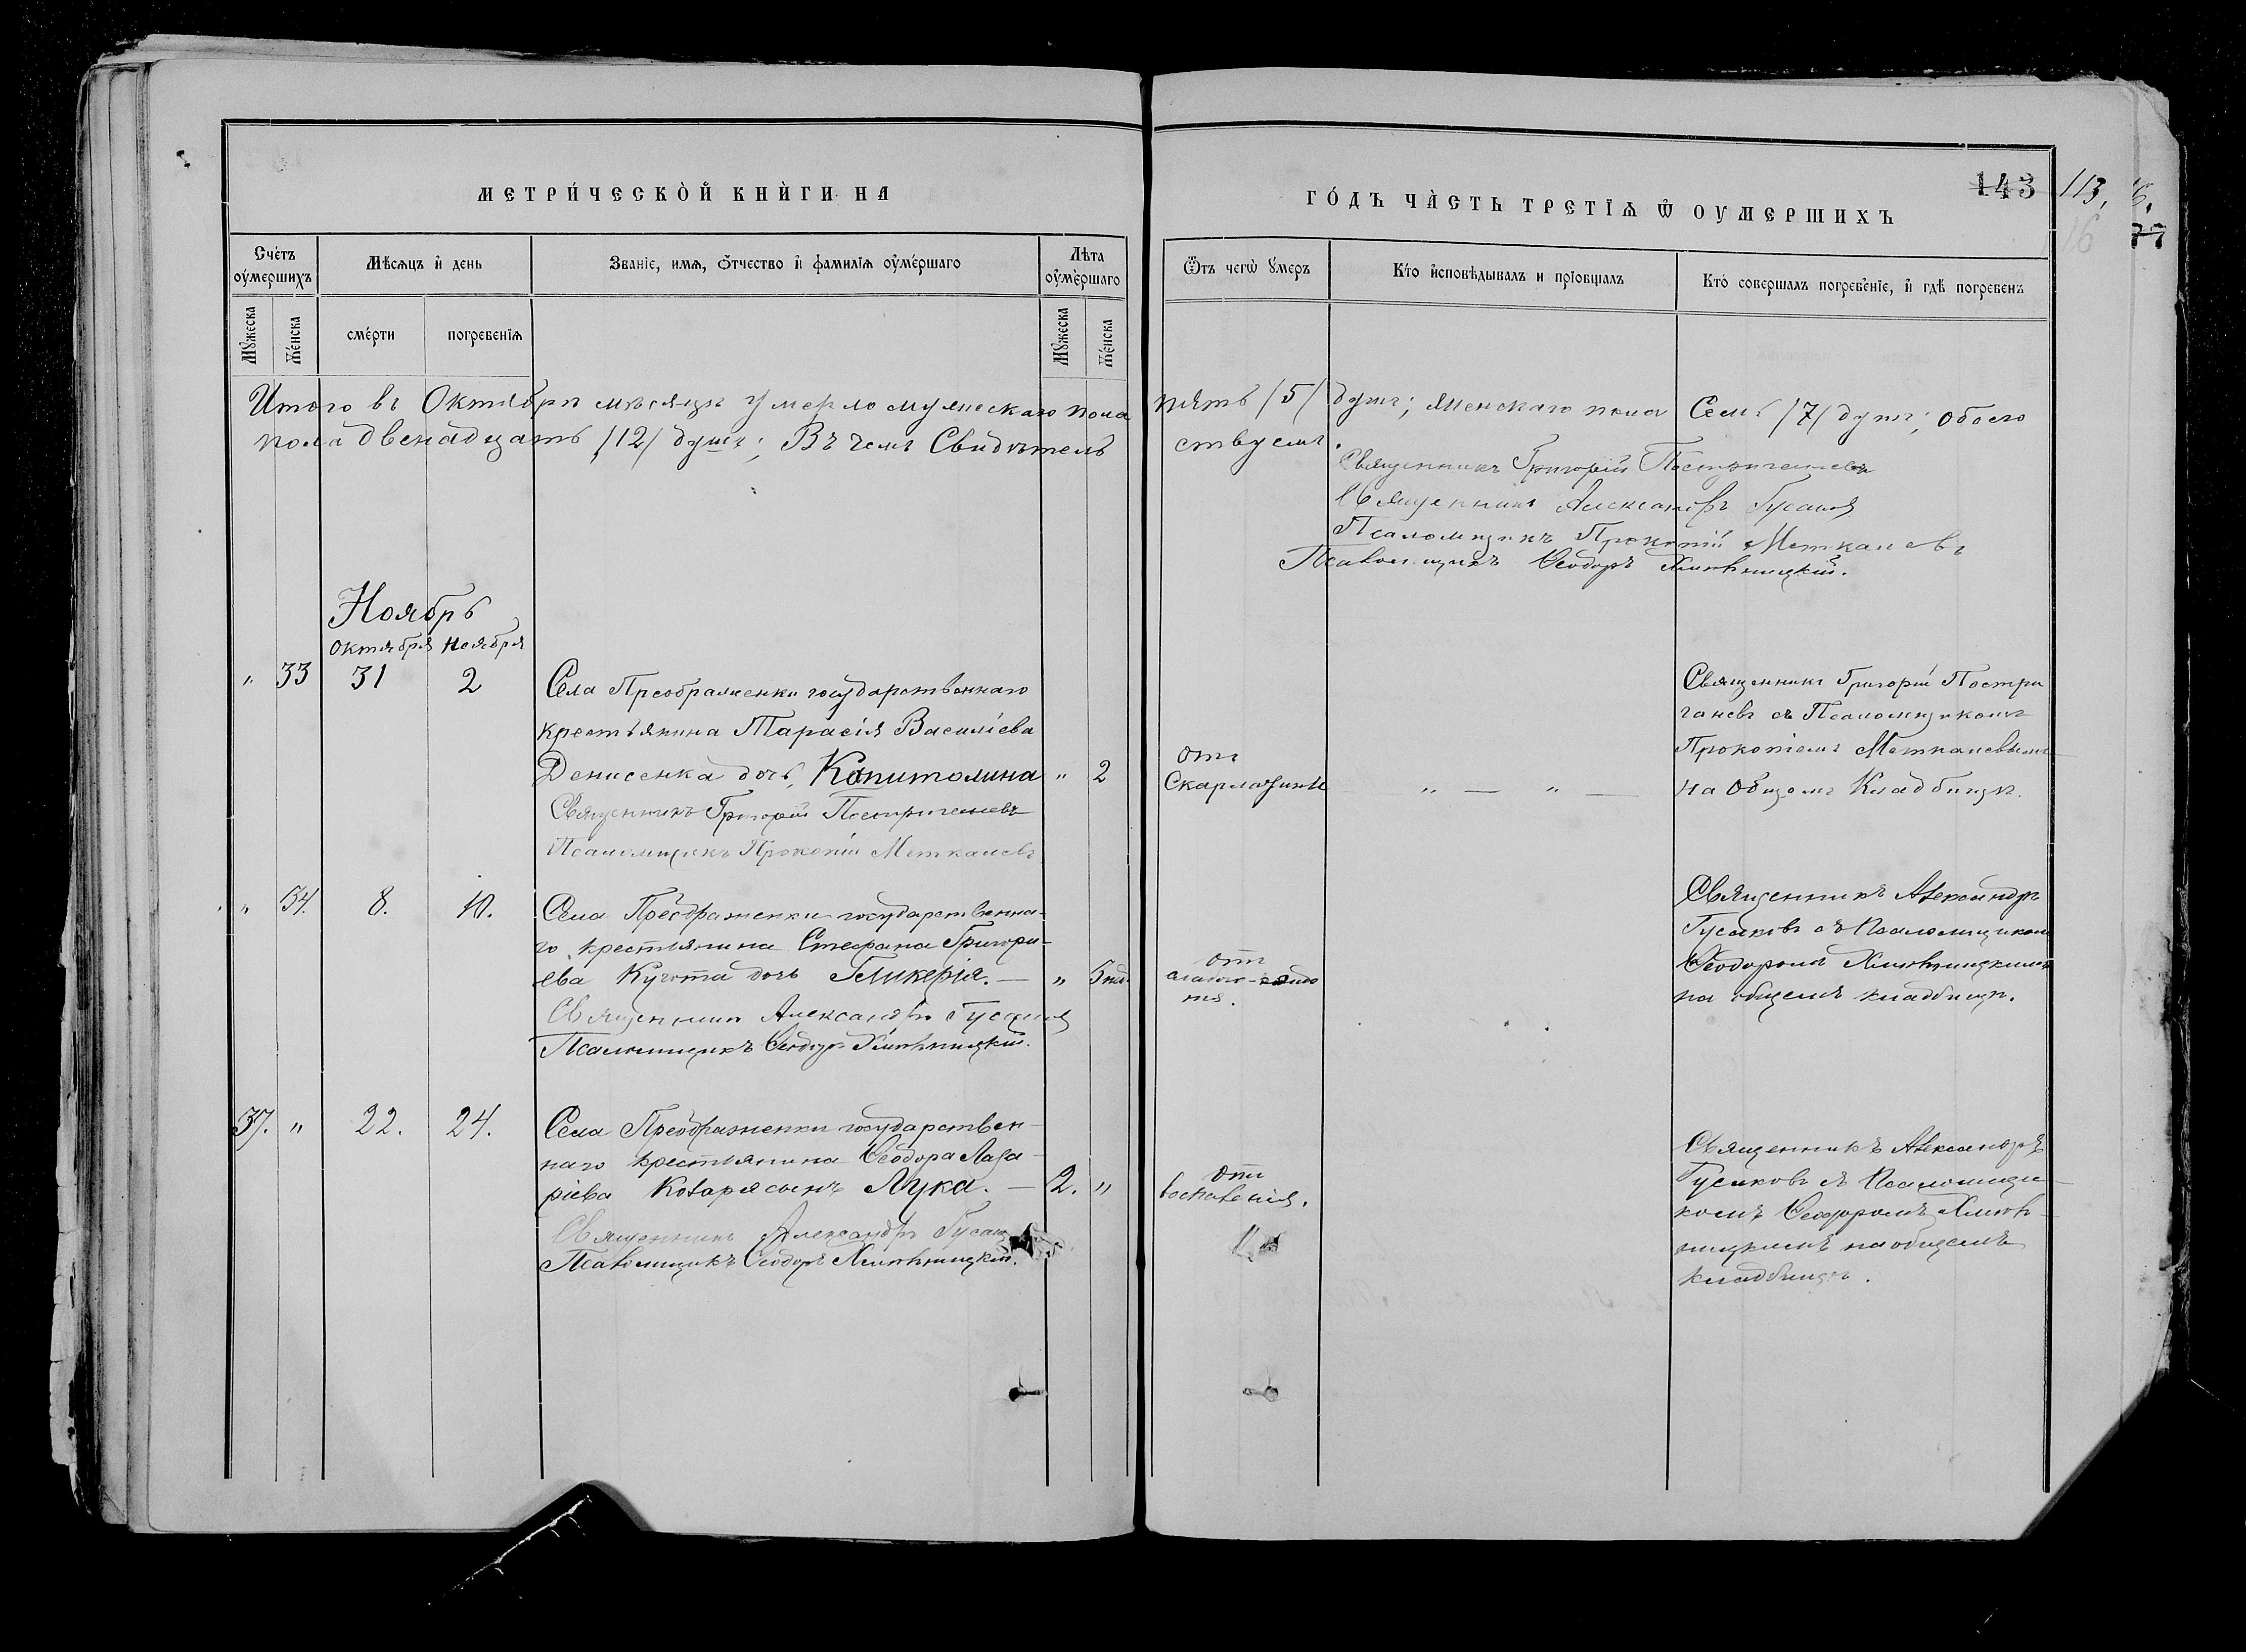 МЕТРИ́ЧЕСКО̀Й КНЍГИ НА
ГО́ДЪ ЧА̀СТЬ ТРЕТІѦ Ѿ ОУМЕРШИХЪ
143 113,
16 77
Счётъ оу́мершихъ
Мѣсѧцъ и҆ день
Званіе, имѧ, ѻ҆тчество и҆ фамиліѧ оу҆ме́ршаго
Лѣта оу҆ме́ршаго
Ѿтъ чегѡ̀ ᲂу҆меръ
Кто̀ и҆сповѣдывалъ и прїобщалъ
Кто̀ совершалъ погребе́ніе, и҆ гдѣ̀ погребенъ
Мꙋжеска
Же́нска
сме́рти
погребеніѧ
Мꙋжеска
Же́нска
Итого въ Октябрѣ мѣсяцѣ умерло мужескаго пола пять /5/ душъ; женскаго пола Семь /7/ душъ; обоего
пола двенадцать /12/ душъ; Въ чемъ Свидѣтельствуемъ.
Священникъ Григорій Постригачевъ
Священникъ Александръ Гусаковъ
Псаломщикъ Прокопій Меткалевъ
Псаломщикъ Ѳеодоръ Хмѣльницкій.
Ноябрь
Октября Ноября
" 33 31 2
Села Преображенки государственнаго
крестьянина Тарасія Василіева
Денисенка дочь, Капитолина " 2
Священникъ Григорій Постригачевъ
Псаломщикъ Прокопій Меткалевъ
отъ
Скарлатины
" — " —
Священникъ Григорій Постри
гачевъ съ Псаломщикомъ
Прокопіемъ Меткалевымъ
на Общемъ Кладбищѣ.
" 34. 8. 10.
Села Преображенки государственна-
го крестьянина Стефана Григорі-
ева Кугота дочь Гликерія. — " 5 нд.
Священникъ Александръ Гусаковъ
Псаломщикъ Ѳеодоръ Хмѣльницкій.
отъ
Священникъ Александръ
Гусаковъ съ Псаломщикомъ
Ѳеодоромъ Хмѣльницкимъ
на общемъ кладбищѣ.
37. " 22. 24.
Села Преображенки государствен-
наго крестьянина Ѳеодора Лаза-
ріева Коваря сынъ Лука. — 2. "
Священникъ Александръ Гусаковъ
Псаломщикъ Ѳеодоръ Хмѣльницкій.
отъ
воспаленія.
Священникъ Александръ
Гусаковъ съ Псаломщи-
комъ Ѳеодоромъ Хмѣль-
ницкимъ на общемъ
кладбищѣ.